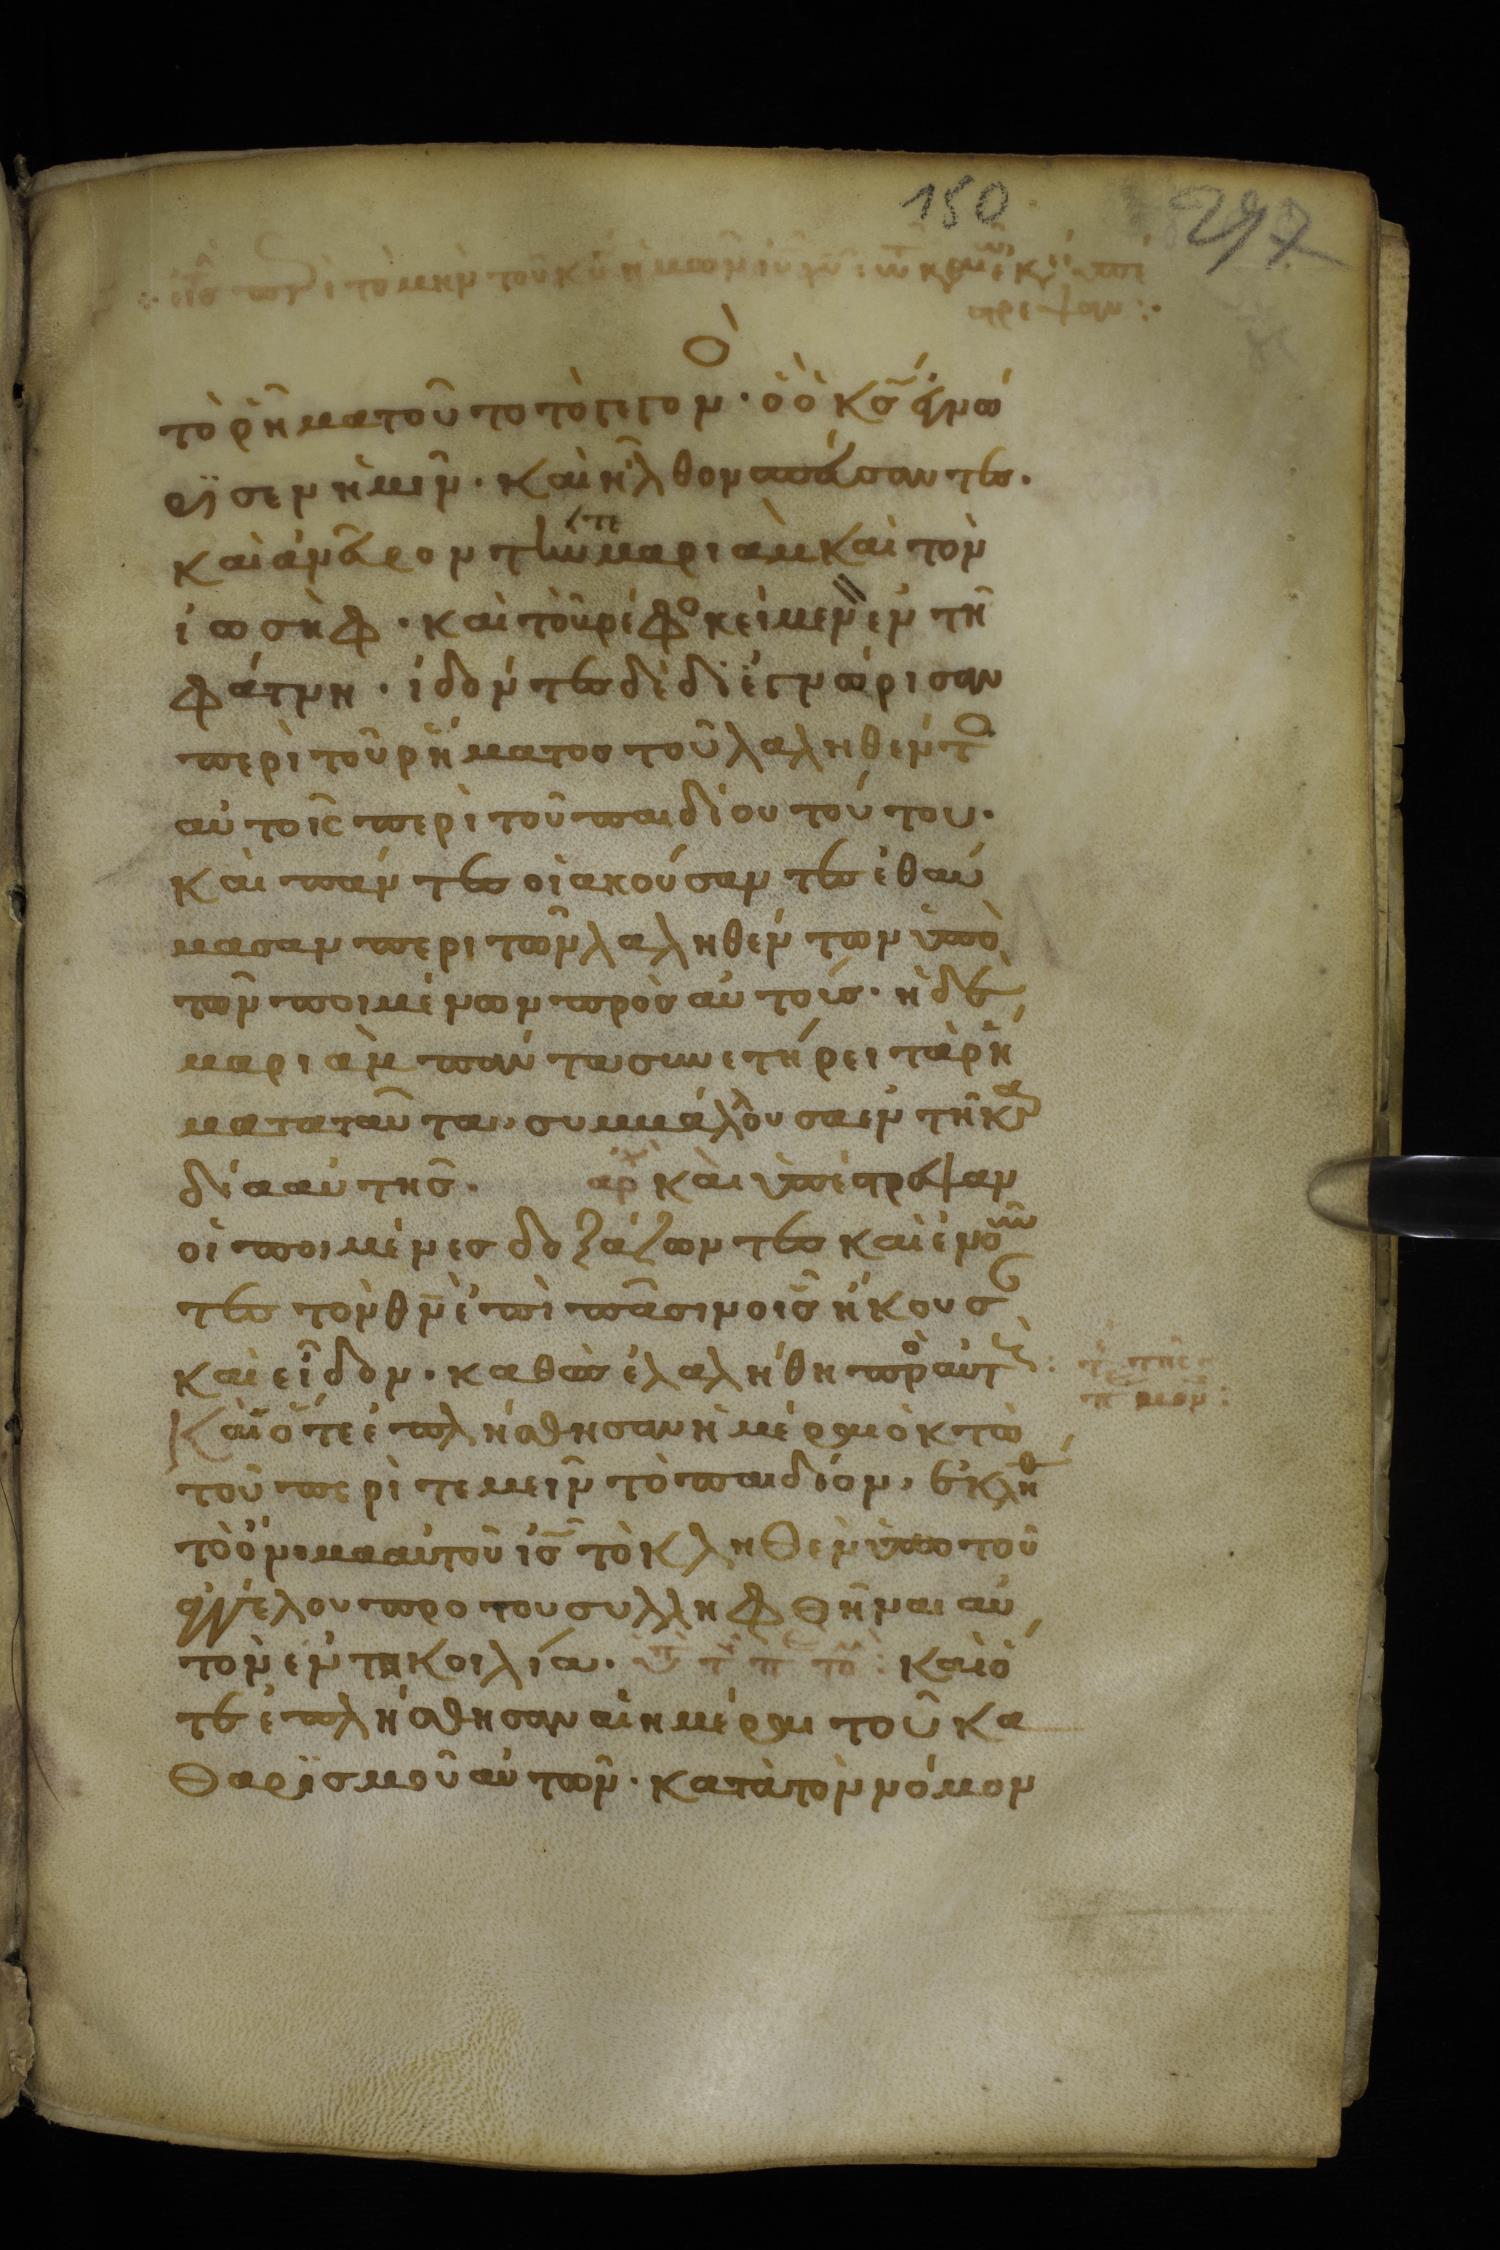 150 297
εἰς τὴν περιτομὴν τοῦ κυ ἡμῶν ιυ χυ
Ὁ
τὸ ῥῆμα τοῦτο τὸ γεγον· ὃ ὁ κς ἐγνώ
ρϊσεν ἡμῖν· καὶ ἦλθον σπεύσαντες·
καὶ ἀνεῦρον τήν τε μαριὰμ καὶ τὸν
ἰωσὴφ· καὶ τὸ βρέφο κείμεν ἐν τῆ
φάτνη· ἰδόντες δὲ διἐγνώρισαν
περὶ τοῦ ῥήματος τοῦ λαληθέντο
αὐτοῖς περὶ τοῦ παιδίου τούτου·
καὶ πάντες οἱ ἀκούσαντες ἐθαύ
μασαν περι τῶν λαληθέντων ὑπὸ
τῶν ποιμένων πρὸς αὐτούς· ἡ δὲ
μαριὰμ πάντα συνετήρει τὰ ῥή
ματα ταῦτα, συμβάλουσα ἐν τῆ κρ
δία αὐτῆς· αρχ καὶ ὑπέστρεψαν
οἱ ποιμένες δοξάζοντες καὶ αἰνοῦν
τες τὸν θν ἐπὶ πᾶσιν οἷς ἤκουσ
καὶ εἶδον· καθὼς ἐλαλήθη πρὸ αὐτ
Καὶ ὅτε ἐπλήσθησαν ἡμέραι ὀκτὼ
τοῦ περὶτεμεῖν τὸ παιδίον, ἐκλήθ
τὸ ὄνομα αὐτοῦ ις τὸ κληθὲν ὑπο τοῦ
ἀγγέλου προ του συλληφθῆναι αὐ
τὸν ἐν τη κοιλία. καὶ ὅ
τε ἐπλήσθησαν αἱ ἡμέραι τοῦ κα
θαρϊσμοῦ αὐτῶν· κατὰ τὸν νόμον